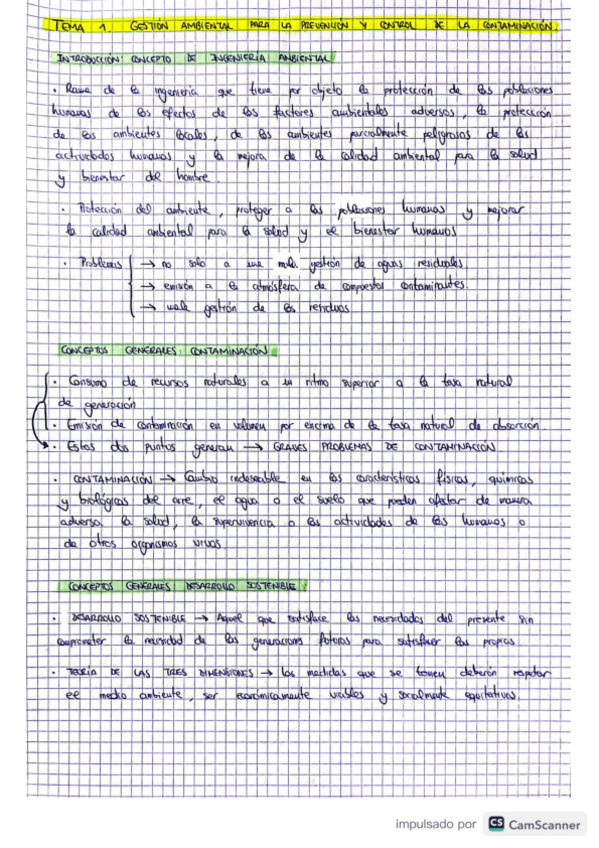 TEMA 1. GESTIÓN AMBIENTAL PARA LA PREVENCIÓN Y CONTROL DE LA CONTAMINACIÓN.
INTRODUCCIÓN: CONCEPTO DE INGENIERÍA AMBIENTAL
· Rama de la ingeniería que tiene por objeto la protección de las poblaciones
humanas de los efectos de los factores ambientales adversos, la protección
de los ambientes locales, de los ambientes parcialmente peligrosos de las
actividades humanas y la mejora de la calidad ambiental para la salud
y bienestar del hombre.
· Protección del ambiente, proteger a las poblaciones humanas y mejorar
la calidad ambiental para la salud y el bienestar humanos
· Problemas → no solo a una mala gestión de aguas residuales
→ emisión a la atmósfera de compuestos contaminantes.
→ mala gestión de los residuos
CONCEPTOS GENERALES: CONTAMINACIÓN
· Consumo de recursos naturales a un ritmo superior a la tasa natural
de generación
· Emisión de contaminación en volumen por encima de la tasa natural de absorción.
· Estos dos puntos generan → GRAVES PROBLEMAS DE CONTAMINACIÓN
· CONTAMINACIÓN → Cambio indeseable en las características físicas, químicas
y biológicas del aire, el agua o el suelo que pueden afectar de manera
adversa la salud, la supervivencia o las actividades de los humanos o
de otros organismos vivos
CONCEPTOS GENERALES: DESARROLLO SOSTENIBLE
· DESARROLLO SOSTENIBLE → Aquel que satisface las necesidades del presente sin
comprometer la necesidad de las generaciones futuras para satisfacer las propias.
· TEORÍA DE LAS TRES DIMENSIONES → las medidas que se tomen deberán respetar
el medio ambiente, ser económicamente viables y socialmente equitativas.
impulsado por CS CamScanner